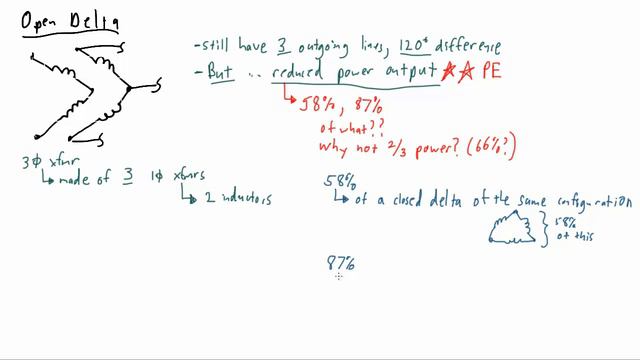 Open Delta
- still have 3 outgoing lines, 120° difference
- But .. reduced power output ☆☆ PE
58%, 87%
of what??
why not 2/3 power? (66%?)
3ϕ xfmr
made of 3 1ϕ xfmrs
2 inductors
58%
of a closed delta of the same configuration
58%
of this
87%